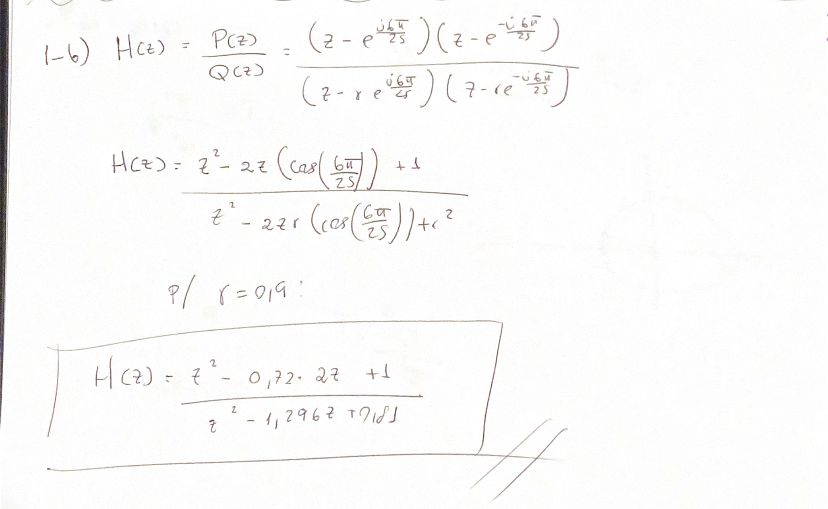 1-b) H(z) = P(z)/Q(z) = (z - e^{j6π/25})(z - e^{-j6π/25}) / (z - re^{j6π/25})(z - re^{-j6π/25})
H(z) = z² - 2z(cos(6π/25)) + 1 / z² - 2zr(cos(6π/25)) + r²
P/ r = 0,9:
H(z) = z² - 0,72·2z + 1 / z² - 1,296z + 0,81